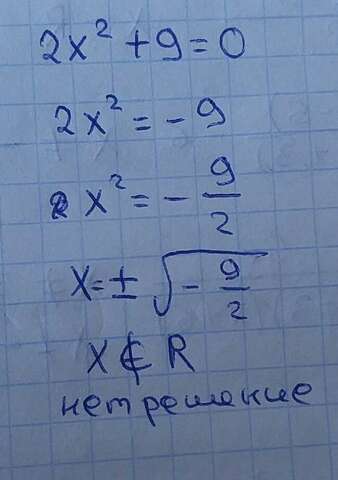 2x² + 9 = 0
2x² = - 9
x² = - 9/2
x = ± √(- 9/2)
x ∉ R
нет решение